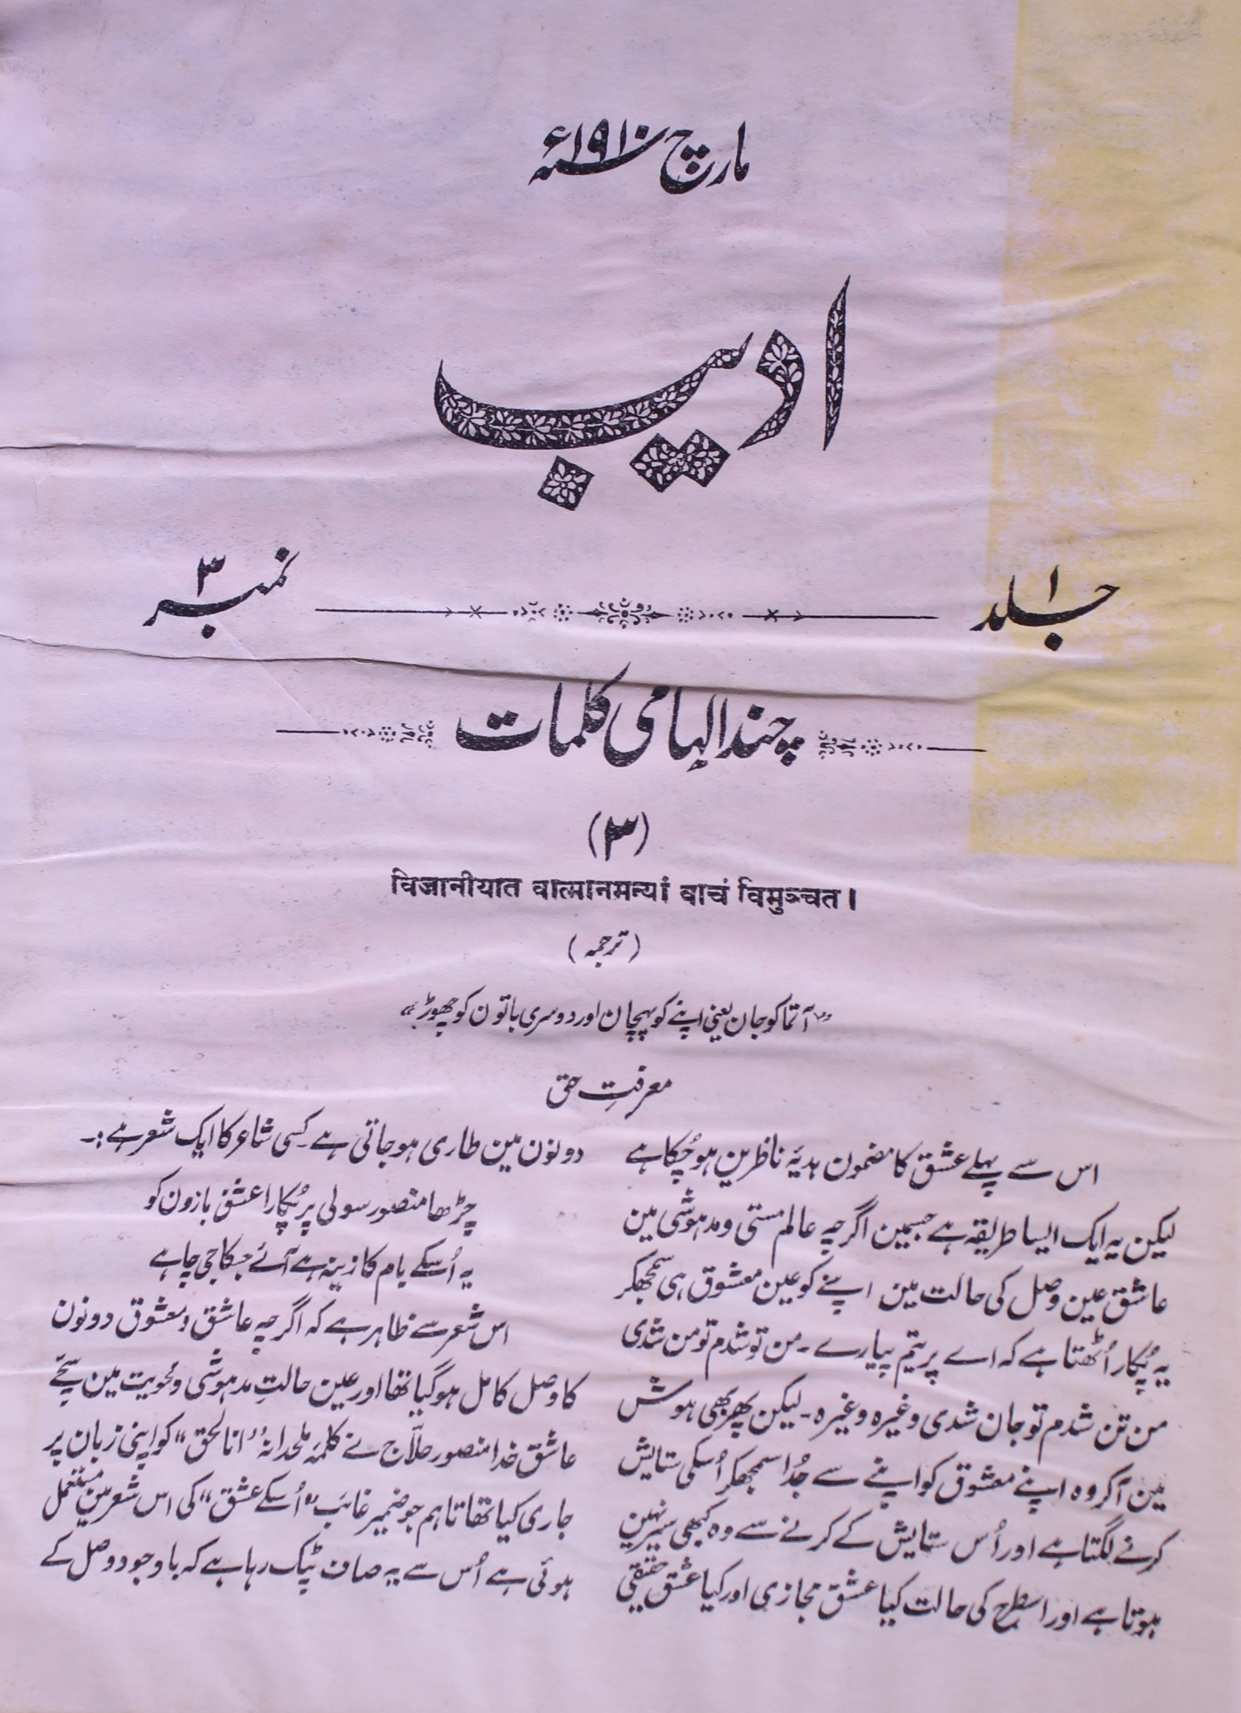 مارچ سنہ ۱۹۱۰ء
ادیب
جلد ۱
نمبر ۳
چند الہامی کلمات
(۳)
विजानीयात वात्मानमन्यां वाचं विमुञ्चत।
(ترجمہ)
”آتما کو جان یعنی اپنے کو پہچان اور دوسری باتون کو چھوڑ“
معرفتِ حق
اس سے پہلے عشق کا مضمون ہدیۂ ناظرین ہو چُکا ہے
لیکن یہ ایک ایسا طریقہ ہے جسمین اگرچہ عالم مستی و مدہوشی مین
عاشق عین وصل کی حالت مین اپنے کو عین معشوق ہی سمجھکر
یہ پُکار اُٹھتا ہے کہ اے پریتم پیارے ۔ من تو شدم تو من شدی
من تن شدم تو جان شدی وغیرہ وغیرہ ۔ لیکن پھر بھی ہوش
مین آکر وہ اپنے معشوق کو اپنے سے جُدا سمجھکر اُسکی ستایش
کرنے لگتا ہے اور اُس ستایش کے کرنے سے وہ کبھی سیر نہین
ہوتا ہے اور اسطرح کی حالت کیا عشق مجازی اور کیا عشق حقیقی
دونون مین طاری ہو جاتی ہے کسی شاعر کا ایک شعر ہے :۔
چڑھا منصور سولی پر پُکارا عشق بازون کو
یہ اُسکے بام کا زینہ ہے آئے جسکا جی چاہے
اس شعر سے ظاہر ہے کہ اگرچہ عاشق و معشوق دونون
کا وصل کامل ہو گیا تھا اور عین حالتِ مدہوشی و محویت مین سچّے
عاشق خدا منصور حلّاج نے کلمۂ ملحدانہ ”انا الحق“ کو اپنی زبان پر
جاری کیا تھا تاہم جو ضمیر غائب ”اُسکے عشق“ کی اس شعر مین مستعمل
ہوئی ہے اُس سے یہ صاف ٹپک رہا ہے کہ باوجود وصل کے